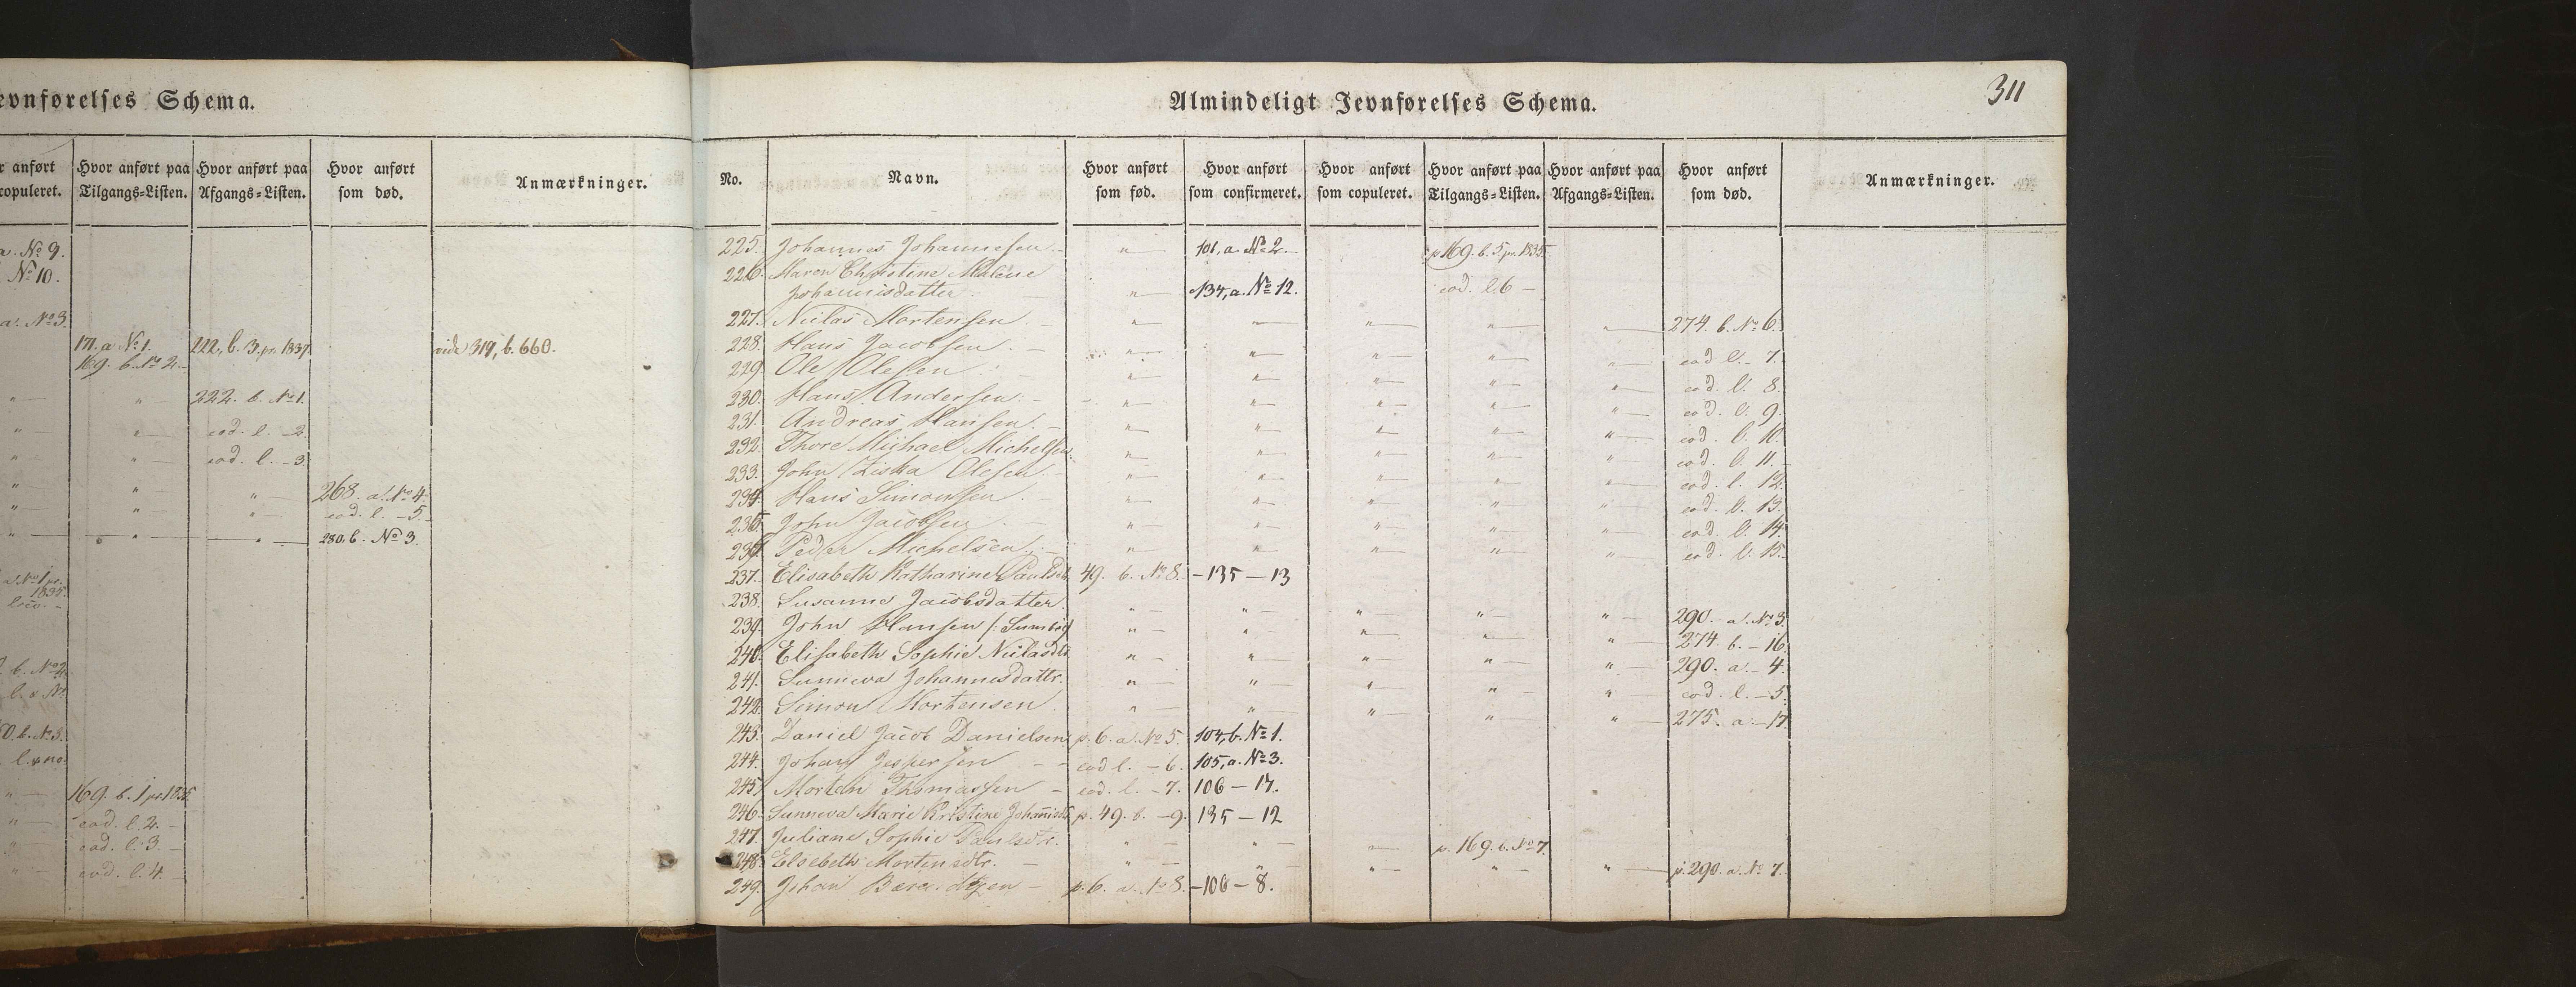 evnførelses Schema.
r anført copuleret. Hvor anført paa Tilgangs-Listen. Hvor anført paa Afgangs-Listen. Hvor anført som død. Anmærkninger.
a. No 9.
No 10.
a. No 3.
171. a No 1. 222, b. 3. pr. 1837. vide 319, b. 660.
169. b. No 2.
" " 222. b. No 1.
" " eod. l. - 2.
" " eod. l. - 3.
" " " 268. a. No 4.
" " " eod. l. - 5.
" " " 280. b. No 3.
b. No 2.
0. b. No 3.
" 169. b. 1 pr. 1835.
" eod. l. 2.
" eod. l. 3.
" eod. l. 4.
311
Almindeligt Jevnførelses Schema.
No. Navn. Hvor anført som fød. Hvor anført som confirmeret. Hvor anført som copuleret. Hvor anført paa Tilgangs-Listen. Hvor anført paa Afgangs-Listen. Hvor anført som død. Anmærkninger.
225. Johannes Johannesen - " 101, a. No 2. p 169. b. 5 pr. 1835.
226. Maren Christine Malene
Johannisdatter. " 134, a. No 12. eod. l. 6 -
227. Niclas Mortensen " " " " " 274. b. No 6.
228. Hans Jacobsen. " " " " " eod l. - 7.
229. Ole Olesen " " " " " eod. l. 8.
230. Hans Andersen. " " " " " eod. l. 9.
231. Andreas Hansen. " " " " " eod. l. 10.
232. Thore Michael Michelsen. " " " " " eod. l. 11.
233. John Ziska Olesen " " " " " eod. l. 12.
234. Hans Simonsen. " " " " " eod. l. 13.
235. John Jacobsen. " " " " " eod. l. 14.
236. Peder Michelsen. " " " " " eod. l. 15.
237. Elisabeth Katharine Paulsdt. 49. b. No 8. - 135 - 13
238. Susanne Jacobsdatter. " " " " " 290. a. No 3.
239. John Hansen /: Sumbø/ " " " " " 274. b. - 16.
240. Elisabeth Sophie Niclasdtr. " " " " " 290. a. - 4.
241. Sunneva Johannisdattr. " " " " " eod. l. - 5.
242. Simon Mortensen. " " " " " 275. a - 17
243. Daniel Jacob Danielsen p. 6. a. No 5. 104, b. No 1.
244. Johan Jespersen - - eod l. - 6. 105, a. No 3.
245. Morten Thomassen - eod. l. - 7. 106 - 17.
246. Sunneva Marie Kristine Johannisdt. p. 49. b. - 9. 135 - 12
247. Juliane Sophie Paulsdtr. " " " p. 169. b. No 7.
248. Elsebeth Mortensdtr. - " " " " " p. 290. a. No 7.
249. Johan - p. 6. a. No 8. - 106 - 8.